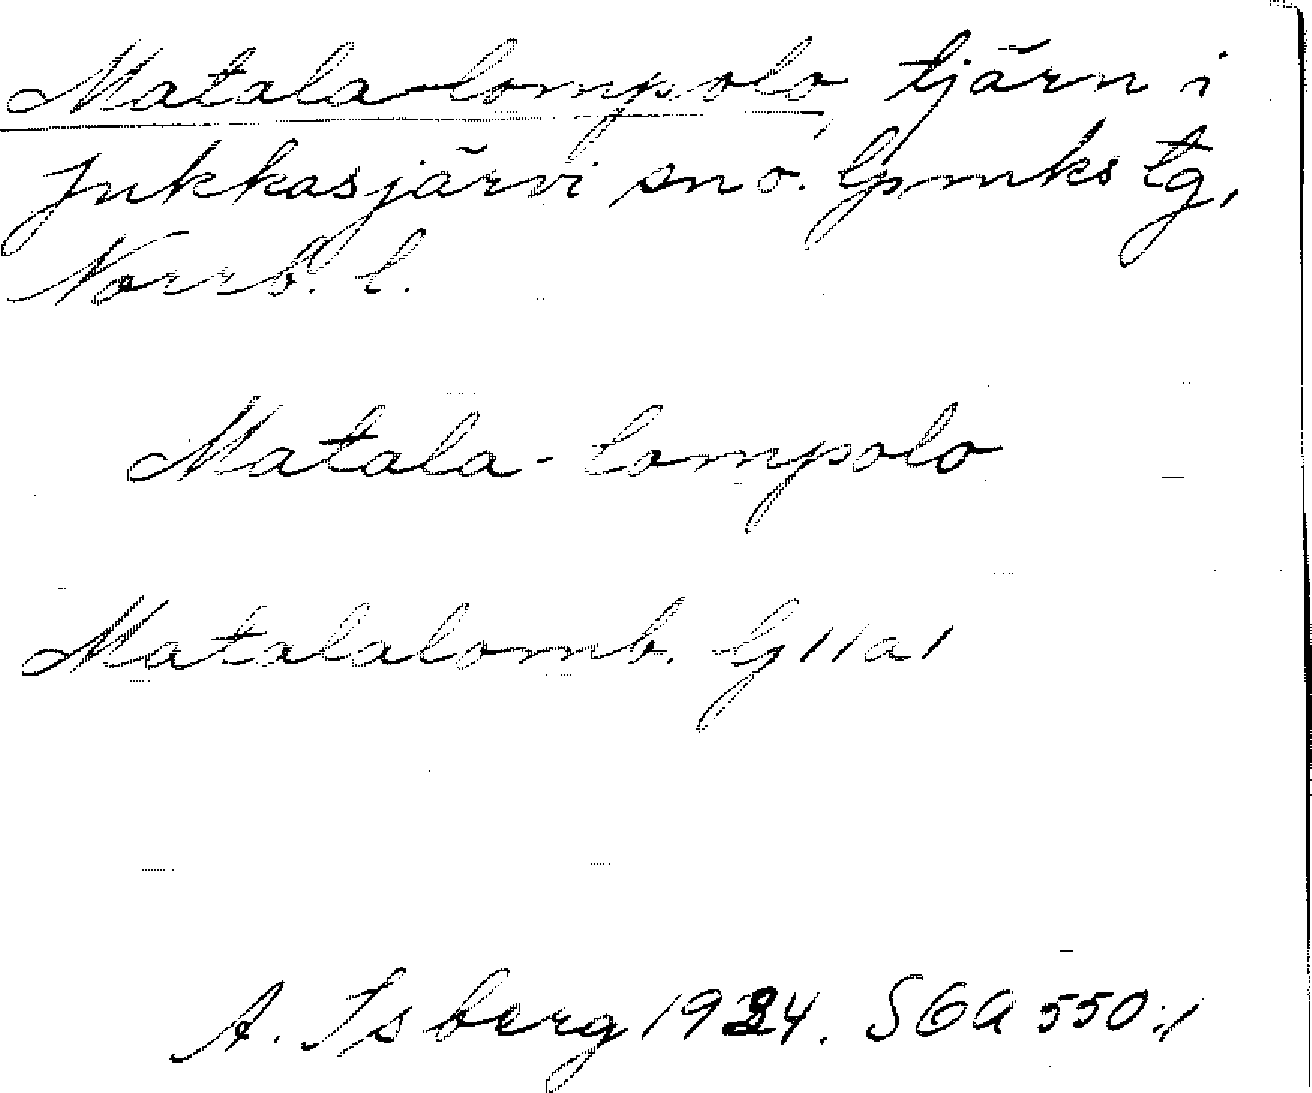 Matala-lompolo, tjärn i
Jukkasjärvi sn o. lpmks tg,
Norrb. l.
Matala-lompolo
Matalalomb. G 11 a 1
A. Isberg 1934. SOA 550:1